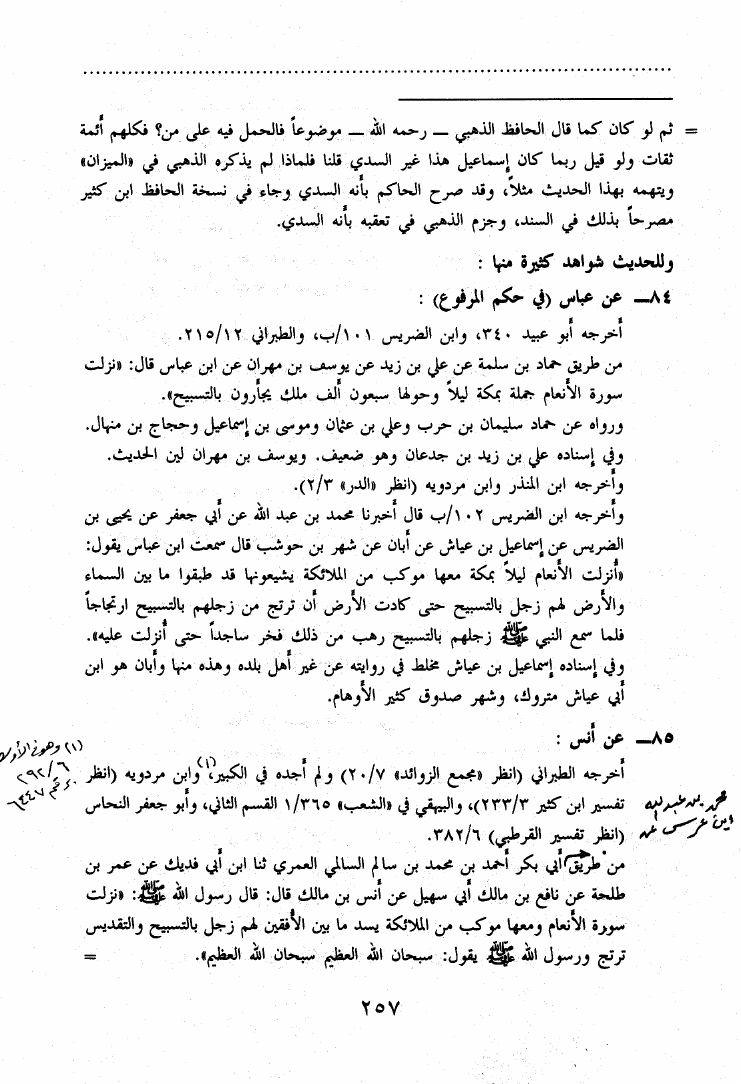 = ثم لو كان كما قال الحافظ الذهبي ــ رحمه الله ــ موضوعاً فالحمل فيه على من؟ فكلهم أئمة
ثقات ولو قيل ربما كان إسماعيل هذا غير السدي قلنا فلماذا لم يذكره الذهبي في «الميزان»
ويتهمه بهذا الحديث مثلاً، وقد صرح الحاكم بأنه السدي وجاء في نسخة الحافظ ابن كثير
مصرحاً بذلك في السند، وجزم الذهبي في تعقبه بأنه السدي.
وللحديث شواهد كثيرة منها :
٨٤ــ عن عباس (في حكم المرفوع) :
أخرجه أبو عبيد ٣٤٠، وابن الضريس ١٠١/ب، والطبراني ٢١٥/١٢.
من طريق حماد بن سلمة عن علي بن زيد عن يوسف بن مهران عن ابن عباس قال: «نزلت
سورة الأنعام جملة بمكة ليلاً وحولها سبعون ألف ملك يجأرون بالتسبيح».
ورواه عن حماد سليمان بن حرب وعلي بن عثمان وموسى بن إسماعيل وحجاج بن منهال.
وفي إسناده علي بن زيد بن جدعان وهو ضعيف. ويوسف بن مهران لين الحديث.
وأخرجه ابن المنذر وابن مردويه (انظر «الدر» ٢/٣).
وأخرجه ابن الضريس ١٠٢/ب قال أخبرنا محمد بن عبد الله عن أبي جعفر عن يحيى بن
الضريس عن إسماعيل بن عياش عن أبان عن شهر بن حوشب قال سمعت ابن عباس يقول:
«أنزلت الأنعام ليلاً بمكة معها موكب من الملائكة يشيعونها قد طبقوا ما بين السماء
والأرض لهم زجل بالتسبيح حتى كادت الأرض أن ترتج من زجلهم بالتسبيح ارتجاجاً
فلما سمع النبي ﷺ زجلهم بالتسبيح رهب من ذلك فخر ساجداً حتى أنزلت عليه».
وفي إسناده إسماعيل بن عياش مخلط في روايته عن غير أهل بلده وهذه منها وأبان هو ابن
أبي عياش متروك، وشهر صدوق كثير الأوهام.
٨٥ــ عن أنس :
(١) وهو في الأوسط
٢٩٢/٦
رقم ٦٤٤٧
أخرجه الطبراني (انظر «مجمع الزوائد» ٢٠/٧) ولم أجده في الكبير،(١) وابن مردويه (انظر
تفسير ابن كثير ٢٣٣/٣)، والبيهقي في «الشعب» ٣٦٥/١ القسم الثاني، وأبو جعفر النحاس
(انظر تفسير القرطبي) ٣٨٢/٦.
محمد بن عبد الله
ابن عرس عن
من طريق أبي بكر أحمد بن محمد بن سالم السالمي العمري ثنا ابن أبي فديك عن عمر بن
طلحة عن نافع بن مالك أبي سهيل عن أنس بن مالك قال: قال رسول الله ﷺ: «نزلت
سورة الأنعام ومعها موكب من الملائكة يسد ما بين الأفقين لهم زجل بالتسبيح والتقديس
ترتج ورسول الله ﷺ يقول: سبحان الله العظيم سبحان الله العظيم». =
٢٥٧